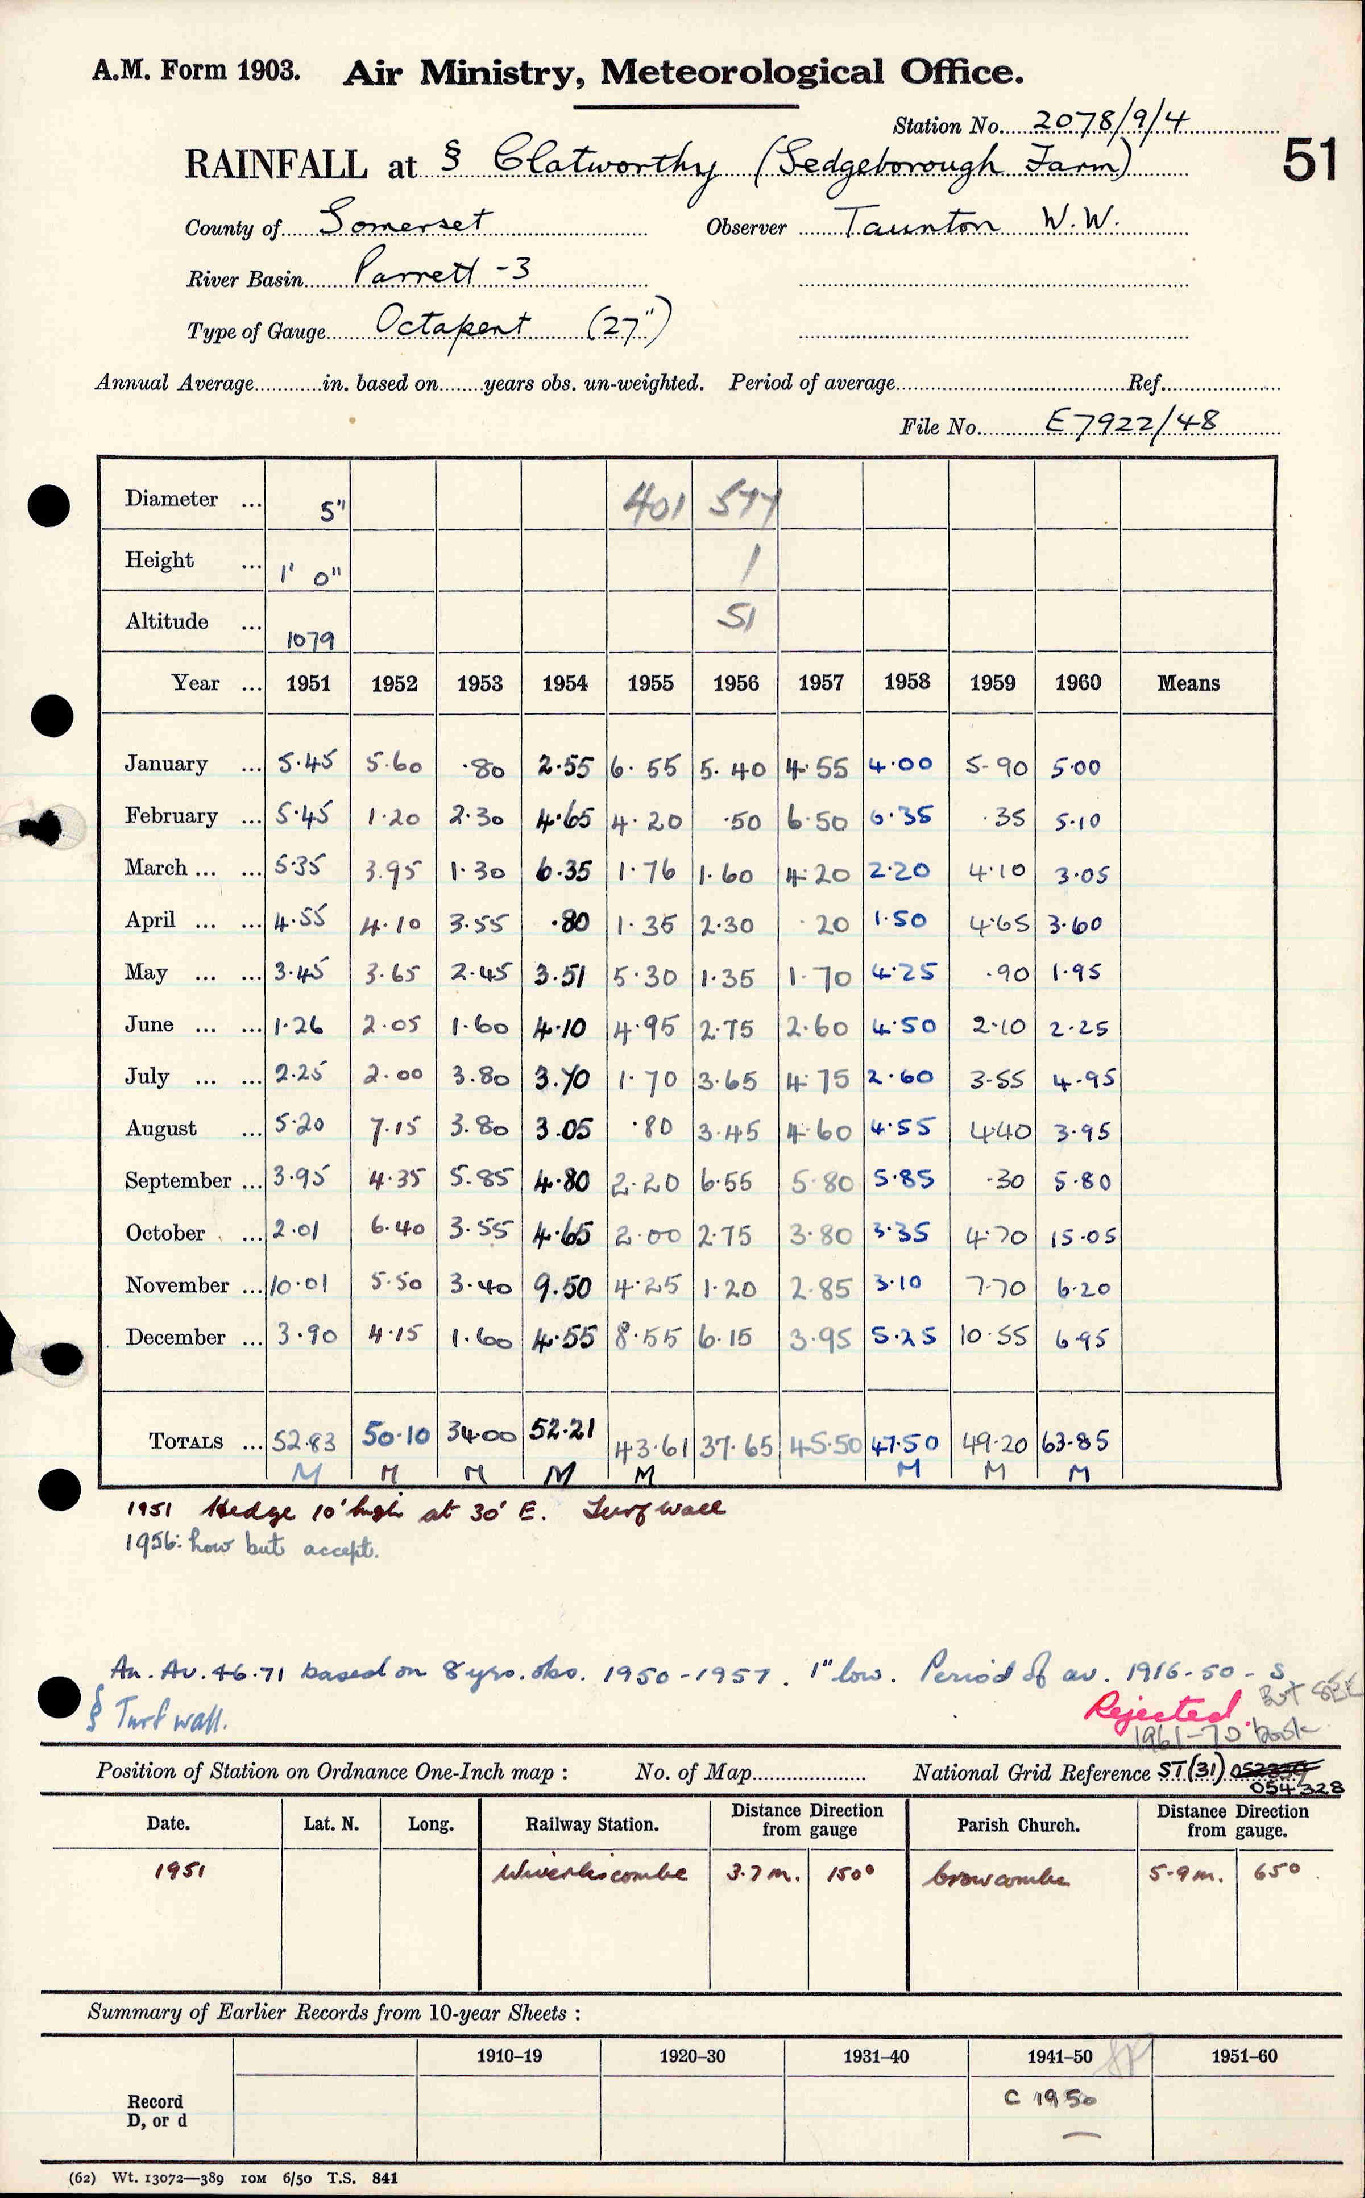 A.M. Form 1903. Air Ministry, Meteorological Office.
Station No. 2078/9/4
RAINFALL at § Clatworthy (Sedgeborough Farm)
51
County of Somerset Observer Taunton W.W.
River Basin Parrett -3
Type of Gauge Octapent (27")
Annual Average in. based on years obs. un-weighted. Period of average Ref.
File No. E7922/48
Diameter ... 5" 401 577
Height ... 1' 0" 1
Altitude ... 1079 51
Year ... 1951 1952 1953 1954 1955 1956 1957 1958 1959 1960 Means
January ... 5.45 5.60 .80 2.55 6.55 5.40 4.55 4.00 5.90 5.00
February ... 5.45 1.20 2.30 4.65 4.20 .50 6.50 6.35 .35 5.10
March ... ... 5.35 3.95 1.30 6.35 1.76 1.60 4.20 2.20 4.10 3.05
April ... ... 4.55 4.10 3.55 .80 1.35 2.30 .20 1.50 4.65 3.60
May ... ... 3.45 3.65 2.45 3.51 5.30 1.35 1.70 4.25 .90 1.95
June ... ... 1.26 2.05 1.60 4.10 4.95 2.75 2.60 4.50 2.10 2.25
July ... ... 2.25 2.00 3.80 3.70 1.70 3.65 4.75 2.60 3.55 4.95
August ... 5.20 7.15 3.80 3.05 .80 3.45 4.60 4.55 4.40 3.95
September ... 3.95 4.35 5.85 4.80 2.20 6.55 5.80 5.85 .30 5.80
October ... 2.01 6.40 3.55 4.65 2.00 2.75 3.80 3.35 4.70 15.05
November ... 10.01 5.50 3.40 9.50 4.25 1.20 2.85 3.10 7.70 6.20
December ... 3.90 4.15 1.60 4.55 8.55 6.15 3.95 5.25 10.55 6.95
TOTALS ... 52.83 50.10 34.00 52.21 43.61 37.65 45.50 47.50 49.20 63.85
M M M M M M M M
1951 Hedge 10' high at 30' E. Turf wall
1956: low but accept.
An. Av. 46.71 based on 8 yrs. obs. 1950-1957. 1" low. Period of av. 1916-50 - S
§ Turf wall.
Rejected. But SEE
1961-70 book
Position of Station on Ordnance One-Inch map : No. of Map National Grid Reference ST(31)
054328
Date. Lat. N. Long. Railway Station. Distance from gauge Direction Parish Church. Distance from gauge. Direction
1951 Wiveliscombe 3.7 m. 150° Crowcombe 5.9 m. 65°
Summary of Earlier Records from 10-year Sheets :
1910–19 1920–30 1931–40 1941–50 1951–60
Record
D, or d
C 1950
(62) Wt. 13072—389 10M 6/50 T.S. 841